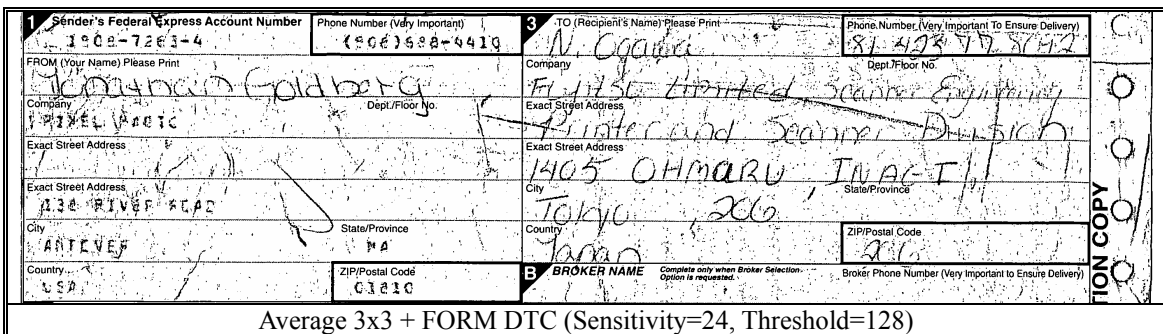 1 Sender's Federal Express Account Number
1909-7263-4
Phone Number (Very Important)
(508)688-4410
FROM (Your Name) Please Print
Jonathan Goldberg
Company
Dept./Floor No.
PIXEL MAGIC
Exact Street Address
Exact Street Address
138 RIVER ROAD
City
State/Province
MA
Country
USA
ZIP/Postal Code
01810
3 TO (Recipient's Name) Please Print
N. Ogawa
Phone Number (Very Important To Ensure Delivery)
81 423 77
Company
Dept./Floor No.
Limited, Scanner
Exact Street Address
Printer and Scanner Division
Exact Street Address
1405 OHMARU, INAGI
City
State/Province
Tokyo, 206
Country
Japan
ZIP/Postal Code
206
B BROKER NAME Complete only when Broker Selection Option is requested.
Broker Phone Number (Very Important to Ensure Delivery)
TION COPY
Average 3x3 + FORM DTC (Sensitivity=24, Threshold=128)